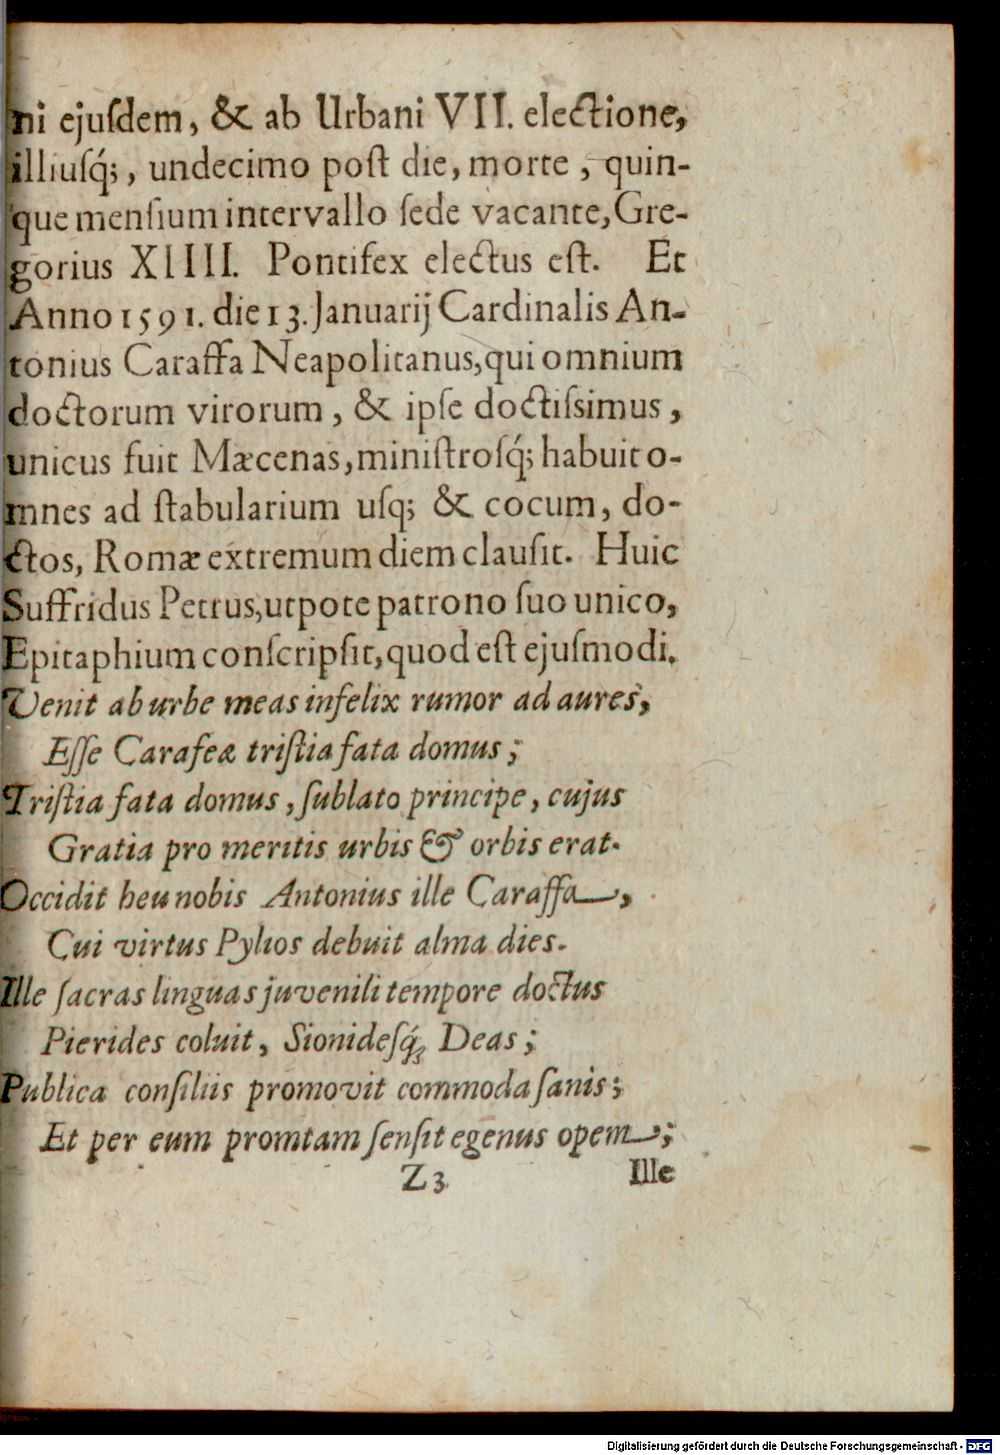 ni ejuſdem, & ab Urbani VII. electione,
illiuſq́;, undecimo poſt die, morte, quin-
que menſium intervallo ſede vacante, Gre-
gorius XIIII. Pontifex electus eſt. Et
Anno 1591. die 13. Januarij Cardinalis An-
tonius Caraffa Neapolitanus, qui omnium
doctorum virorum, & ipſe doctiſsimus,
unicus fuit Mæcenas, miniſtroſq́; habuit o-
mnes ad ſtabularium uſq; & cocum, do-
ctos, Romæ extremum diem clauſit. Huic
Suffridus Petrus, utpote patrono ſuo unico,
Epitaphium conſcripſit, quod eſt ejuſmodi.
Venit ab urbe meas infelix rumor ad aures,
Eſſe Carafeæ triſtia fata domus;
Triſtia fata domus, ſublato principe, cujus
Gratia pro meritis urbis & orbis erat.
Occidit heu nobis Antonius ille Caraffa,
Cui virtus Pylios debuit alma dies.
Ille ſacras linguas juvenili tempore doctus
Pierides coluit, Sionideſq́; Deas;
Publica conſiliis promovit commoda ſanis;
Et per eum promtam ſenſit egenus opem;
Z 3 Ille
Digitalisierung gefördert durch die Deutsche Forschungsgemeinschaft - DFG